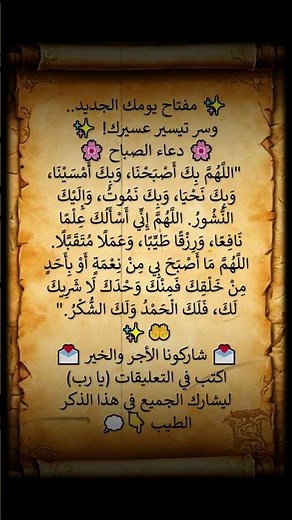 ✨ مفتاح يومك الجديد..
وسر تيسير عسيرك! ✨
🌸 دعاء الصباح 🌸
"اللَّهُمَّ بِكَ أَصْبَحْنَا، وَبِكَ أَمْسَيْنَا،
وَبِكَ نَحْيَا، وَبِكَ نَمُوتُ، وَإِلَيْكَ
النُّشُورُ. اللَّهُمَّ إِنِّي أَسْأَلُكَ عِلْمًا
نَافِعًا، وَرِزْقًا طَيِّبًا، وَعَمَلًا مُتَقَبَّلًا.
اللَّهُمَّ مَا أَصْبَحَ بِي مِنْ نِعْمَةٍ أَوْ بِأَحَدٍ
مِنْ خَلْقِكَ فَمِنْكَ وَحْدَكَ لَا شَرِيكَ
لَكَ، فَلَكَ الْحَمْدُ وَلَكَ الشُّكْرُ."
🤲 ✨
💌 شاركونا الأجر والخير 💌
اكتب في التعليقات (يا رب)
ليشارك الجميع في هذا الذكر
الطيب 👇 💭